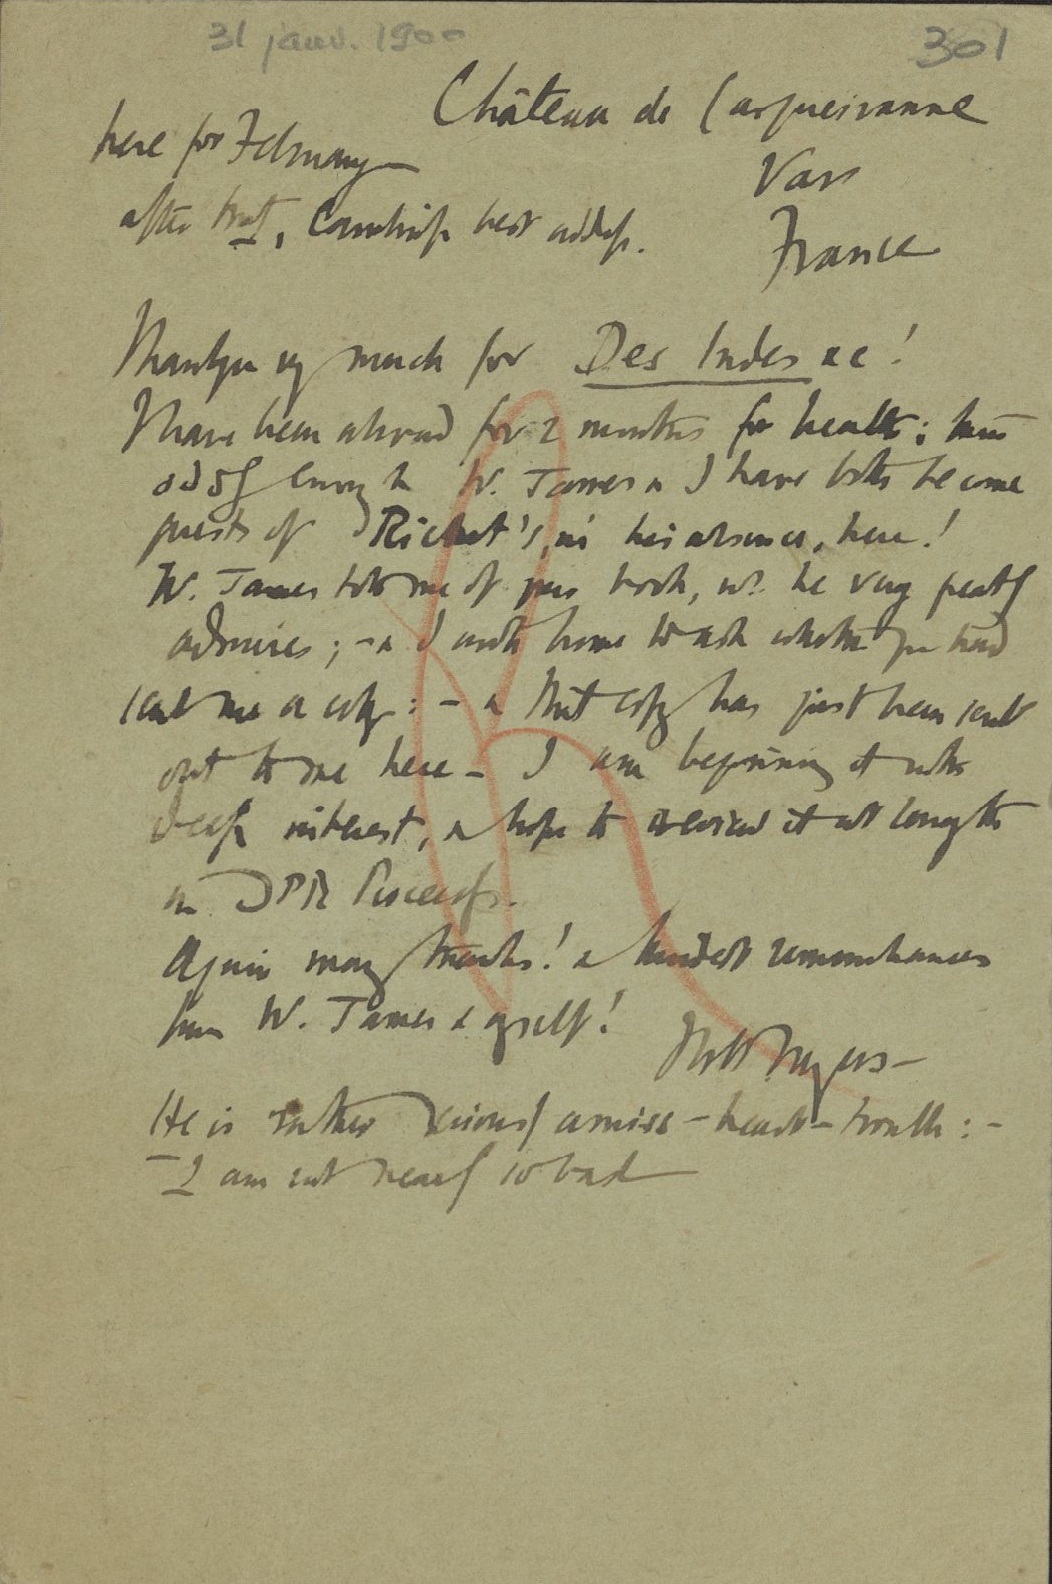 31 janv. 1900
301
Château de Carqueiranne
Var
France
here for February
after that, Cambridge best address.
Thank you very much for Des Indes &c!
I have been abroad for 2 months for health;
oddly enough W. James & I have both become
guests of Richet's, in his absence, here!
W. James told me of your book, wh. he very greatly
admires; - & I wrote home to ask whether you had
sent me a copy: - & that copy has just been sent
out to me here - I am beginning it with
deep interest, & hope to review it at length
in SPR Proceedgs.
Again many thanks! & kindest remembrances
from W. James & myself!
Myers -
He is rather seriously amiss - heart - trouble: -
I am not nearly so bad